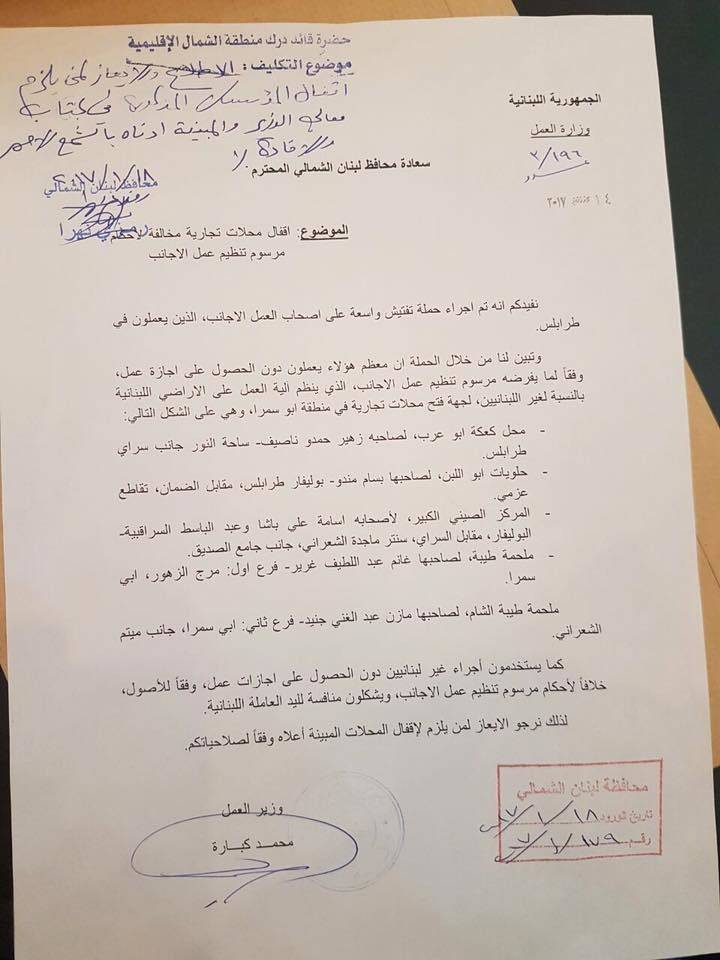 حضرة قائد درك منطقة الشمال الإقليمية
موضوع التكليف: الاطلاع والايعاز لمن يلزم
اقفال المؤسسات الواردة في كتاب
معالي الوزير والمبينة ادناه بالشمع الاحمر
والافادة
محافظ لبنان الشمالي
رمزي نهرا
الجمهورية اللبنانية
وزارة العمل
٣/١٩٦
١٤ ٢٠١٧
سعادة محافظ لبنان الشمالي المحترم
الموضوع: اقفال محلات تجارية مخالفة لأحكام
مرسوم تنظيم عمل الاجانب
نفيدكم انه تم اجراء حملة تفتيش واسعة على اصحاب العمل الاجانب، الذين يعملون في
طرابلس.
وتبين لنا من خلال الحملة ان معظم هؤلاء يعملون دون الحصول على اجازة عمل،
وفقاً لما يفرضه مرسوم تنظيم عمل الاجانب، الذي ينظم آلية العمل على الاراضي اللبنانية
بالنسبة لغير اللبنانيين، لجهة فتح محلات تجارية في منطقة ابو سمرا، وهي على الشكل التالي:
- محل كعكة ابو عرب، لصاحبه زهير حمدو ناصيف- ساحة النور جانب سراي
طرابلس.
- حلويات ابو اللبن، لصاحبها بسام مندو- بوليفار طرابلس، مقابل الضمان، تقاطع
عزمي.
- المركز الصيني الكبير، لأصحابه اسامة علي باشا وعبد الباسط السراقبية-
البوليفار، مقابل السراي، سنتر ماجدة الشعراني، جانب جامع الصديق.
- ملحمة طيبة، لصاحبها غانم عبد اللطيف غرير- فرع اول: مرج الزهور، ابي
سمرا.
ملحمة طيبة الشام، لصاحبها مازن عبد الغني جنيد- فرع ثاني: ابي سمرا، جانب ميتم
الشعراني.
كما يستخدمون أجراء غير لبنانيين دون الحصول على اجازات عمل، وفقاً للأصول،
خلافاً لأحكام مرسوم تنظيم عمل الاجانب، ويشكلون منافسة لليد العاملة اللبنانية.
لذلك نرجو الايعاز لمن يلزم لإقفال المحلات المبينة أعلاه وفقاً لصلاحياتكم.
وزير العمل
محمد كبارة
محافظة لبنان الشمالي
تاريخ الورود ١٨/١/١٧
رقم ١٧٩/